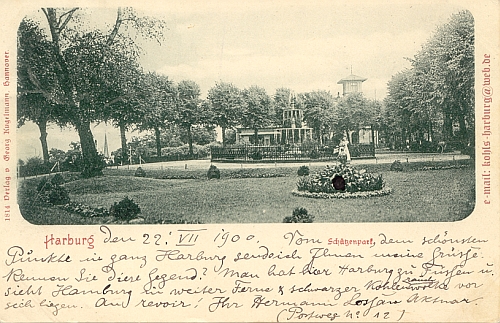 1814 Verlag v. Georg Kugelmann, Hannover.
e-mail: kohls-harburg@web.de
Harburg den 22. VII 1900. Vom Schützenpark, dem schönsten
Punkte in ganz Harburg sende ich Ihnen meine Grüsse.
Kennen Sie diese Gegend? Man hat hier Harburg zu Füssen u.
sieht Hamburg in weiter Ferne & schwarzer Kohlenwolke vor
sich liegen. Au revoir! Ihr Hermann
(Postweg No. 12)